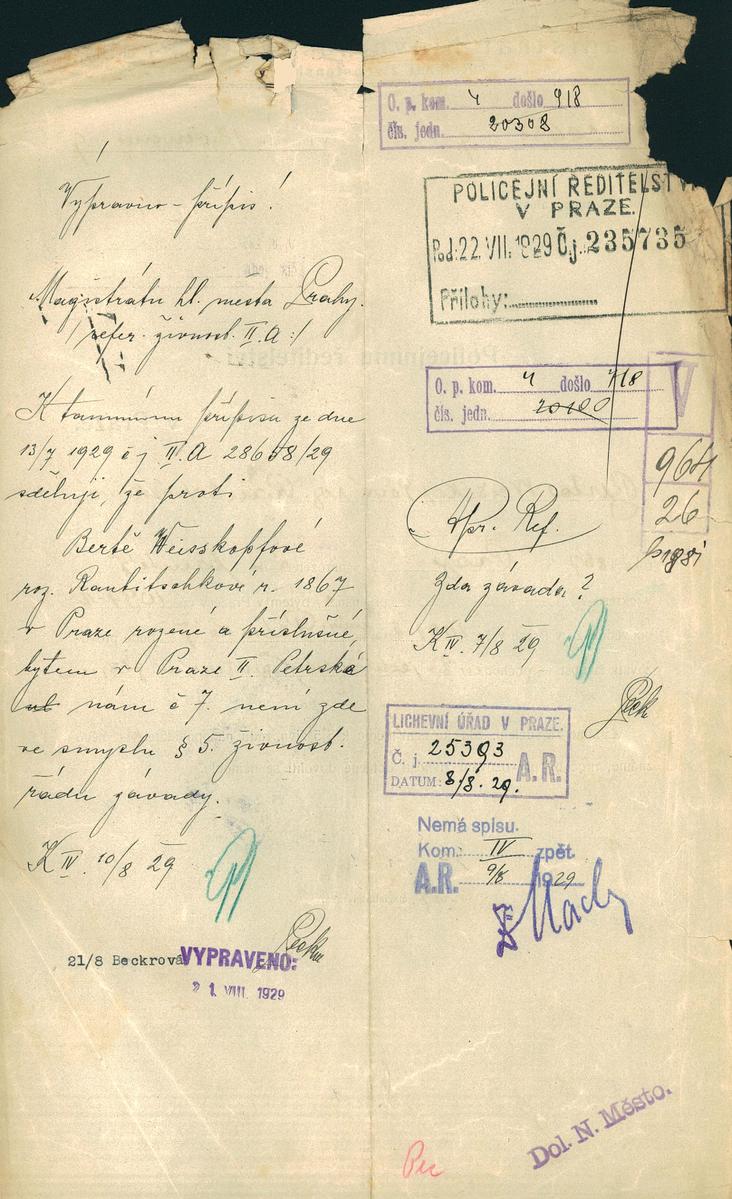 Vypraviv - přípis!
Magistrátu hl. města Prahy.
/: refer. živnost. II.A :/
K tamnímu přípisu ze dne
13/7 1929 č j II.A 28658/29
sděluji, že proti
Bertě Weisskopfové
roz. Rautitschkové r. 1867
v Praze rozené a příslušné,
bytem v Praze II. Petrská
nám č 7. není zde
ve smyslu § 5. živnost.
řádu závady.
K IV 10/8 29
21/8 Beckrová
VYPRAVENO:
21. VIII. 1929
O. p. kom. 4 došlo 9/8
čís. jedn. 20308
POLICEJNÍ ŘEDITELSTV
V PRAZE.
Pod: 22. VII. 1929 Č.j. 235735
Přílohy:
O. p. kom. 4 došlo 7/8
čís. jedn. 20100
V
964
26
Ref.
Zda závada?
K IV. 7/8 29
LICHEVNÍ ÚŘAD V PRAZE.
Č. j. 25393
DATUM: 8/8. 29.
A.R.
Nemá spisu.
Kom: IV zpět.
A.R. 9/8 1929
Dol. N. Město.